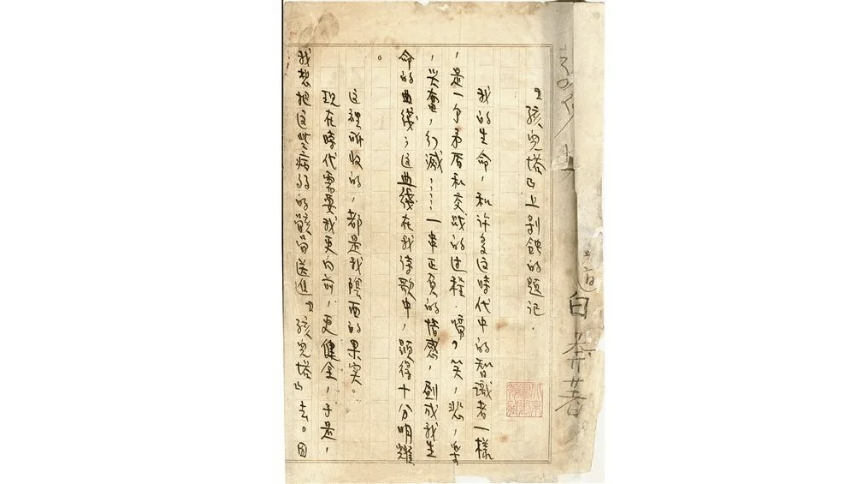 白莽著
『孩兒塔』上剝蝕的題記.
我的生命,和許多這時代中的智識者一樣
,是一个矛盾和交戰的过程.啼,笑,悲,樂
,兴奮,幻滅……一串正負的情感,劃成我生
命的曲线;這曲线在我詩歌中,顕得十分明耀
。
這裡所收的,都是我陰面的果实。
現在時代需要我更向前,更健全,于是,
我想把這些病弱的骸骨送進『孩兒塔』去。因